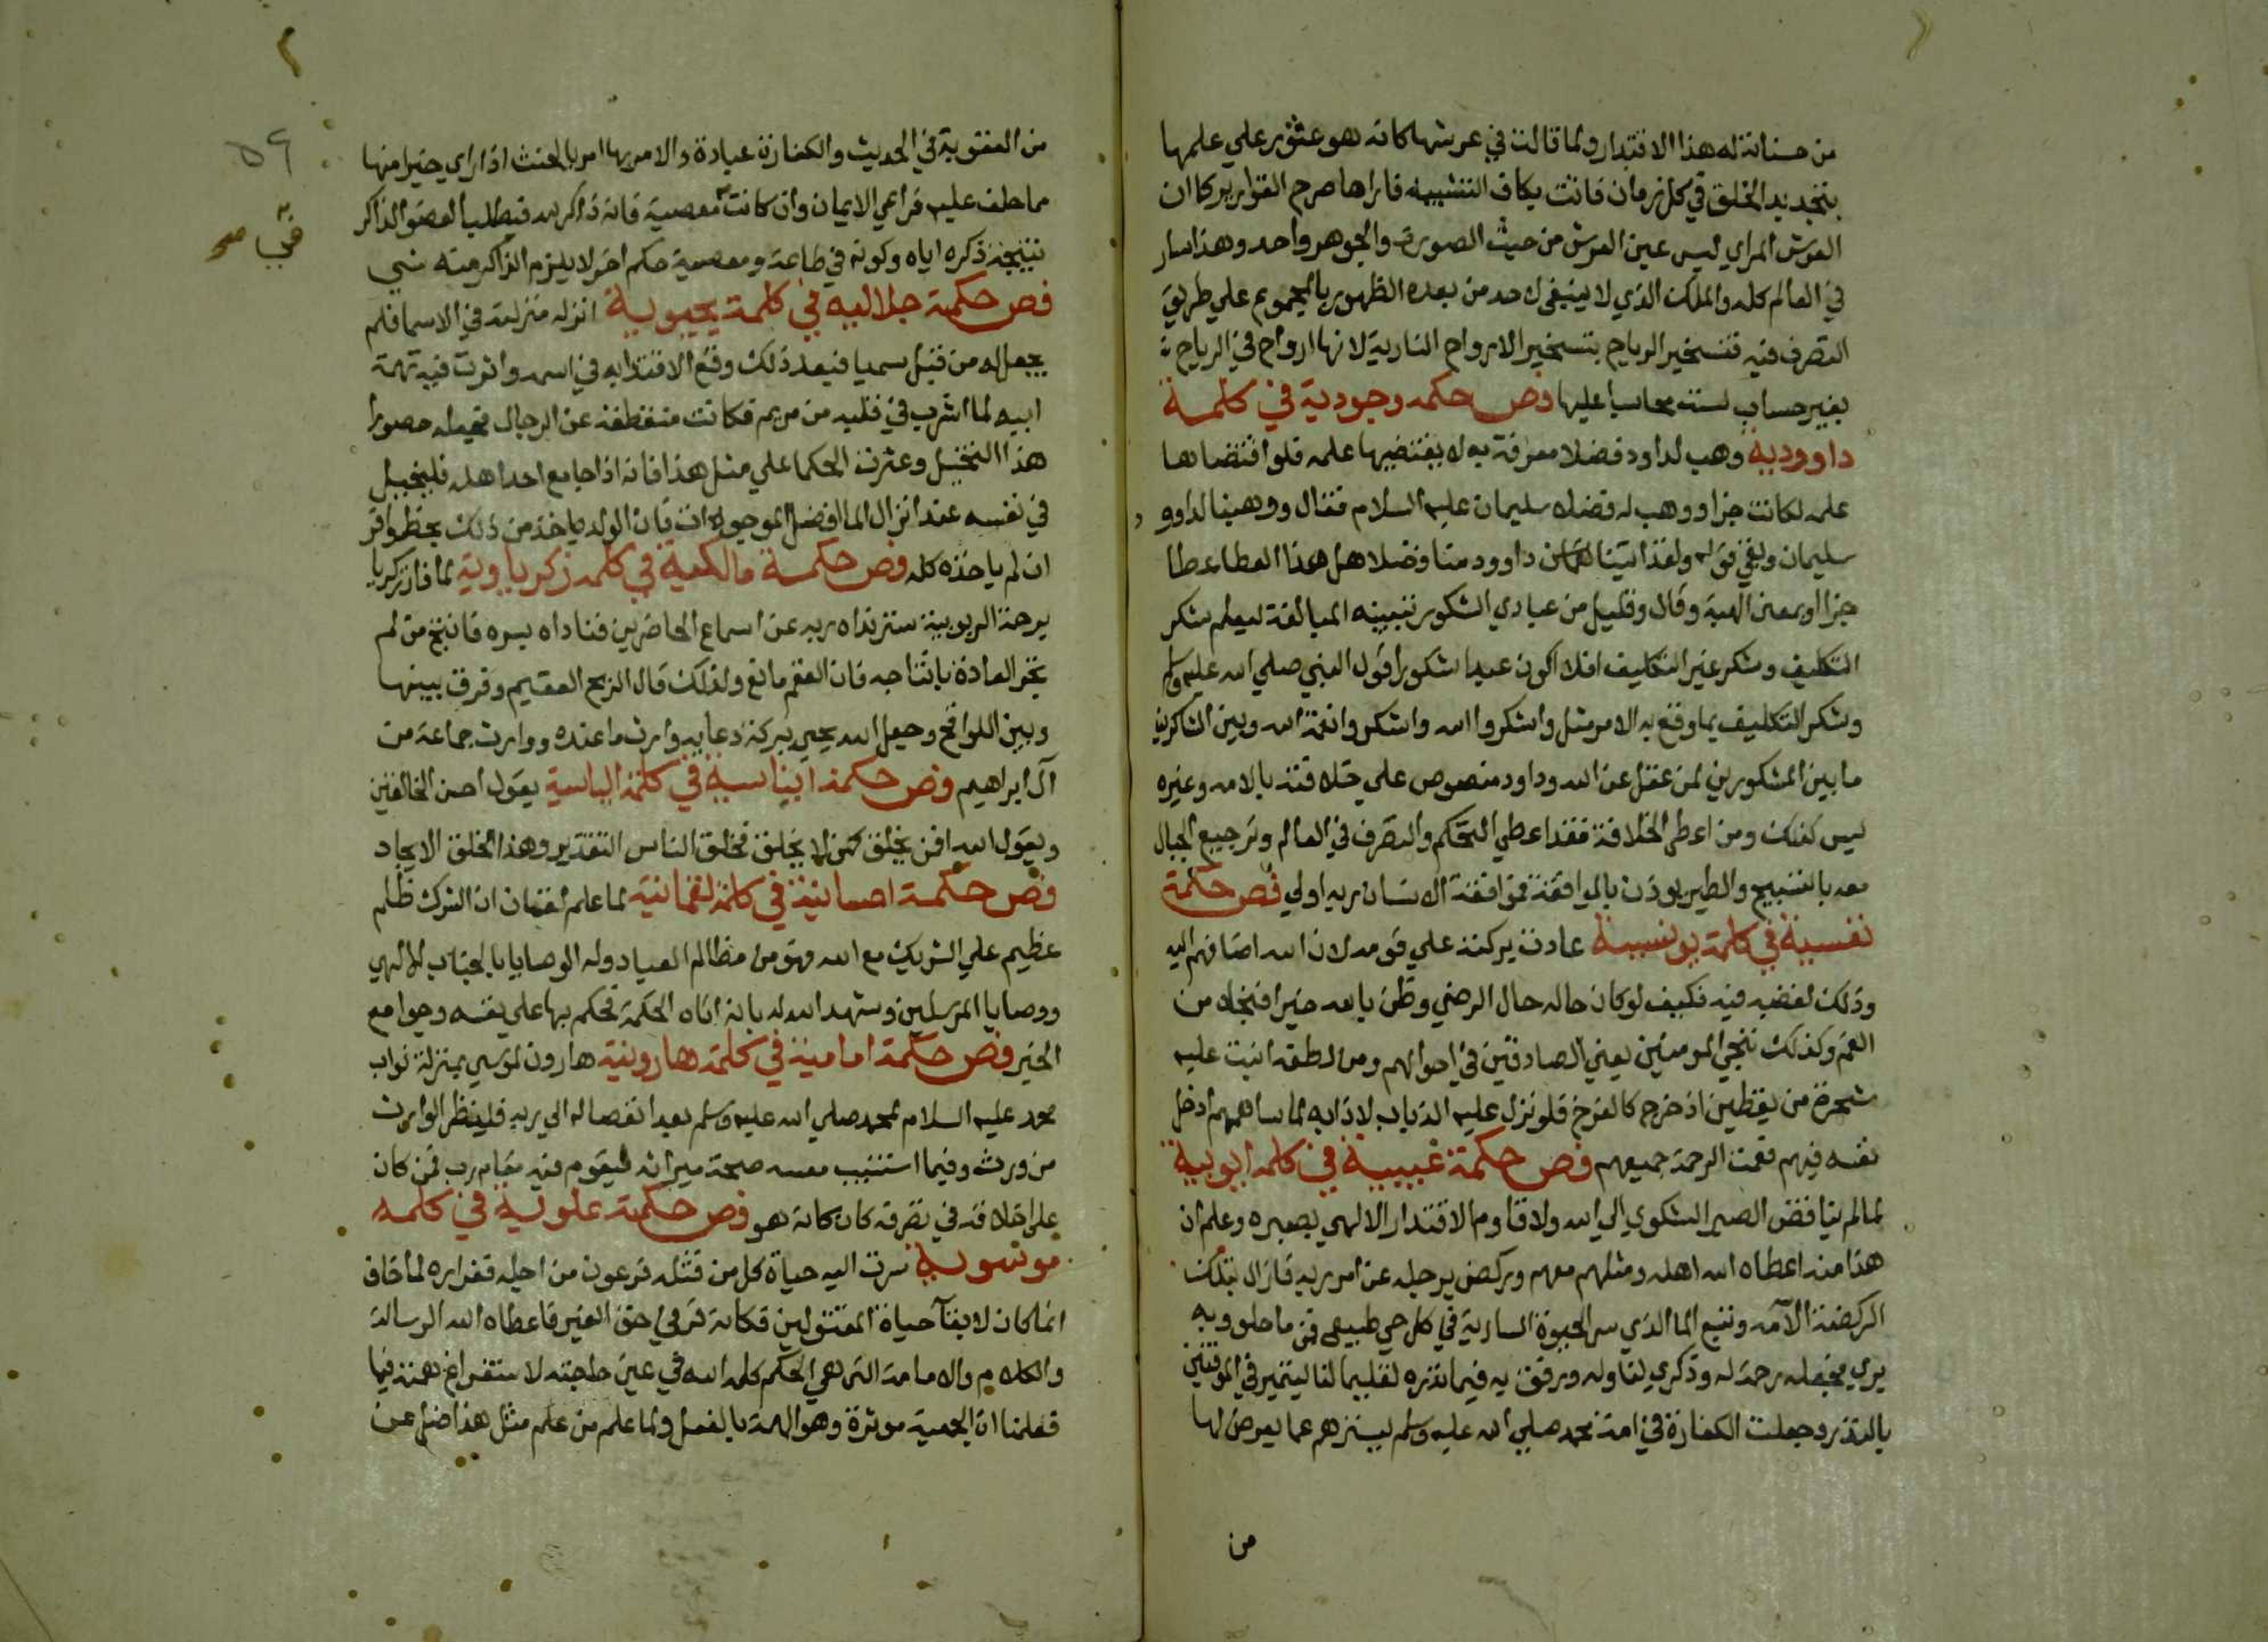 من حسناته له هذا الاقتدار ولما قالت في عرشها كانه هو عثور علي علمها
بتجديد الخلق في كل زمان فاتت بكاف التشبيه فاراها صرح القوارير كما ان
العرش المراي ليس عين العرش من حيث الصورة والجوهر واحد وهذا سار
في العالم كله والملك الذي لا ينبغي لاحد من بعده الظهور بالمجموع علي طريق
التصرف فيه فتسخير الرياح بتسخير الارواح النارية لانها ارواح في الرياح
بغير حساب لست محاسبا عليها فص حكمه وجودية في كلمة
داووديه وهب لداود فضلا معرفة به لا يقتضيها علمه فلو اقتضاها
علمه لكانت جزا ووهب له فضلا سليمان عليه السلام فقال ووهبنا لداوود
سليمان وبقي قوله ولقد اتينا داوود منا فضلا هل هذا العطا عطا
جزا او بمعني الهبة وقال وقليل من عبادي الشكور ببنيه المبالغة ليعلم شكر
التكليف وشكر غير التكليف افلا اكون عبدا شكورا قول النبي صلي الله عليه وسلم
وشكر التكليف بما وقع به الامر مثل واشكروا الله واشكروا نعمة الله وبين الشاكرين
ما بين المشكورين لمن عقل عن الله وداود منصوص علي خلافته بالامه وغيره
ليس كذلك ومن اعطي الخلافة فقد اعطي التحكم والتصرف في العالم وترجيع الجبال
معه بالتسبيح والطير يوذن بالموافقة فموافقة الانسان ربه اولي فص حكمة
نفسية في كلمة يونسية عادت بركته علي قومه لان الله اضافهم اليه
وذلك لغضبه فيه فكيف لو كان حاله حال الرضي وظن بالله خيرا فنجاه من
الغم وكذلك ننجي المومنين يعني الصادقين في احوالهم ومن لطفه انبت عليه
شجرة من يقطين اذ خرج كالفرخ فلو نزل عليه الذباب لاذابه لما ساهمهم ادخل
نفسه فيهم فعمت الرحمة جميعهم فص حكمة غيبية في كلمه ايوبية
لما لم يناقض الصبر الشكوي الي الله ولا قاوم الاقتدار الالهي بصبره وعلم ان
هذا منه اعطاه الله اهله ومثلهم معهم وركض برجله عن امر ربه فازال بتلك
الركضة الآمه ونبع الما الذي سر الحيوة السارية في كل حي طبيعي فمن ما خلق وبه
بري فجعله رحمة له وذكري لنا وله ورفق به فيما نذره تعليما لنا ليتميز في الموفين
بالنذر وجعلت الكفارة في امة محمد صلي الله عليه وسلم ليسترهم عما يعرض لها
من
٥٩
من العقوبة في الحديث والكفارة عبادة والامر بها امر بالحنث اذا راي خيرا منها
مما حلف عليه فراعي الايمان وان كانت معصية فانه ذاكر لله فيطلب العضو الذاكر
في صح
نتيجة ذكره اياه وكونه في طاعة ومعصية حكم اخر لا يلزم الذاكر منه شي
فص حكمة جلاليه في كلمة يحيوية انزله منزلته في الاسما فلم
يجعل له من قبل سميا فبعد ذلك وقع الاقتدا به في اسمه واثرت فيه همة
ابيه لما اشرب في قلبه من مريم فكانت منقطعة عن الرجال فجعله حصورا
هذا التخيل وعثرت الحكما علي مثل هذا فانه اذا جامع احد اهله فليتخيل
في نفسه عند انزال الما افضل الموجودات فان الولد ياخذ من ذلك بحظ وافر
ان لم ياخذه كله فص حكمة مالكية في كلمه زكرياوية لما فاز زكريا
برحمة الربوبية ستر نداه ربه عن اسماع الحاضرين فناداه بسره فانتج من لم
تجر العادة بانتاجه فان العقم مانع ولذلك قال الريح العقيم وفرق بينها
وبين اللواقح وجعل الله يحيي ببركة دعايه وارث ما عنده ووارث جماعة من
آل ابراهيم فص حكمة ايناسية في كلمة الياسية يقول احسن الخالقين
ويقول الله افمن يخلق كمن لا يخلق فخلق الناس التقدير وهذا الخلق الايجاد
فص حكمة احسانية في كلمة لقمانية لما علم لقمان ان الشرك ظلم
عظيم علي الشريك مع الله فهو من مظالم العباد وله الوصايا بالجناب الالهي
ووصايا المرسلين وشهد الله له بانه اتاه الحكمة فحكم بها علي نفسه وجوامع
الخير فص حكمة امامية في كلمة هارونية هارون لموسي بمنزلة نواب
محمد عليه السلام لمحمد صلي الله عليه وسلم بعد انفصاله الي ربه فلينظر الوارث
من ورث وفيما استنيب معسه صحة ميراثه ليقوم فيه مقام رب فمن كان
علي اخلاقه في تصرفه كان كانه هو فص حكمة علوية في كلمه
موسوية سرت اليه حياة كل من قتله فرعون من اجله ففراره لما خاف
انما كان لابقآ حياة المقتولين فكانه فر في حق الغير فاعطاه الله الرسالة
والكلام والامامة التي هي الحكم كلمه الله في عين حاجته لاستفراغ همته فيها
فعلمنا ان الجمعية موثرة وهو الهمة بالفعل ولما علم من علم مثل هذا ضل عن